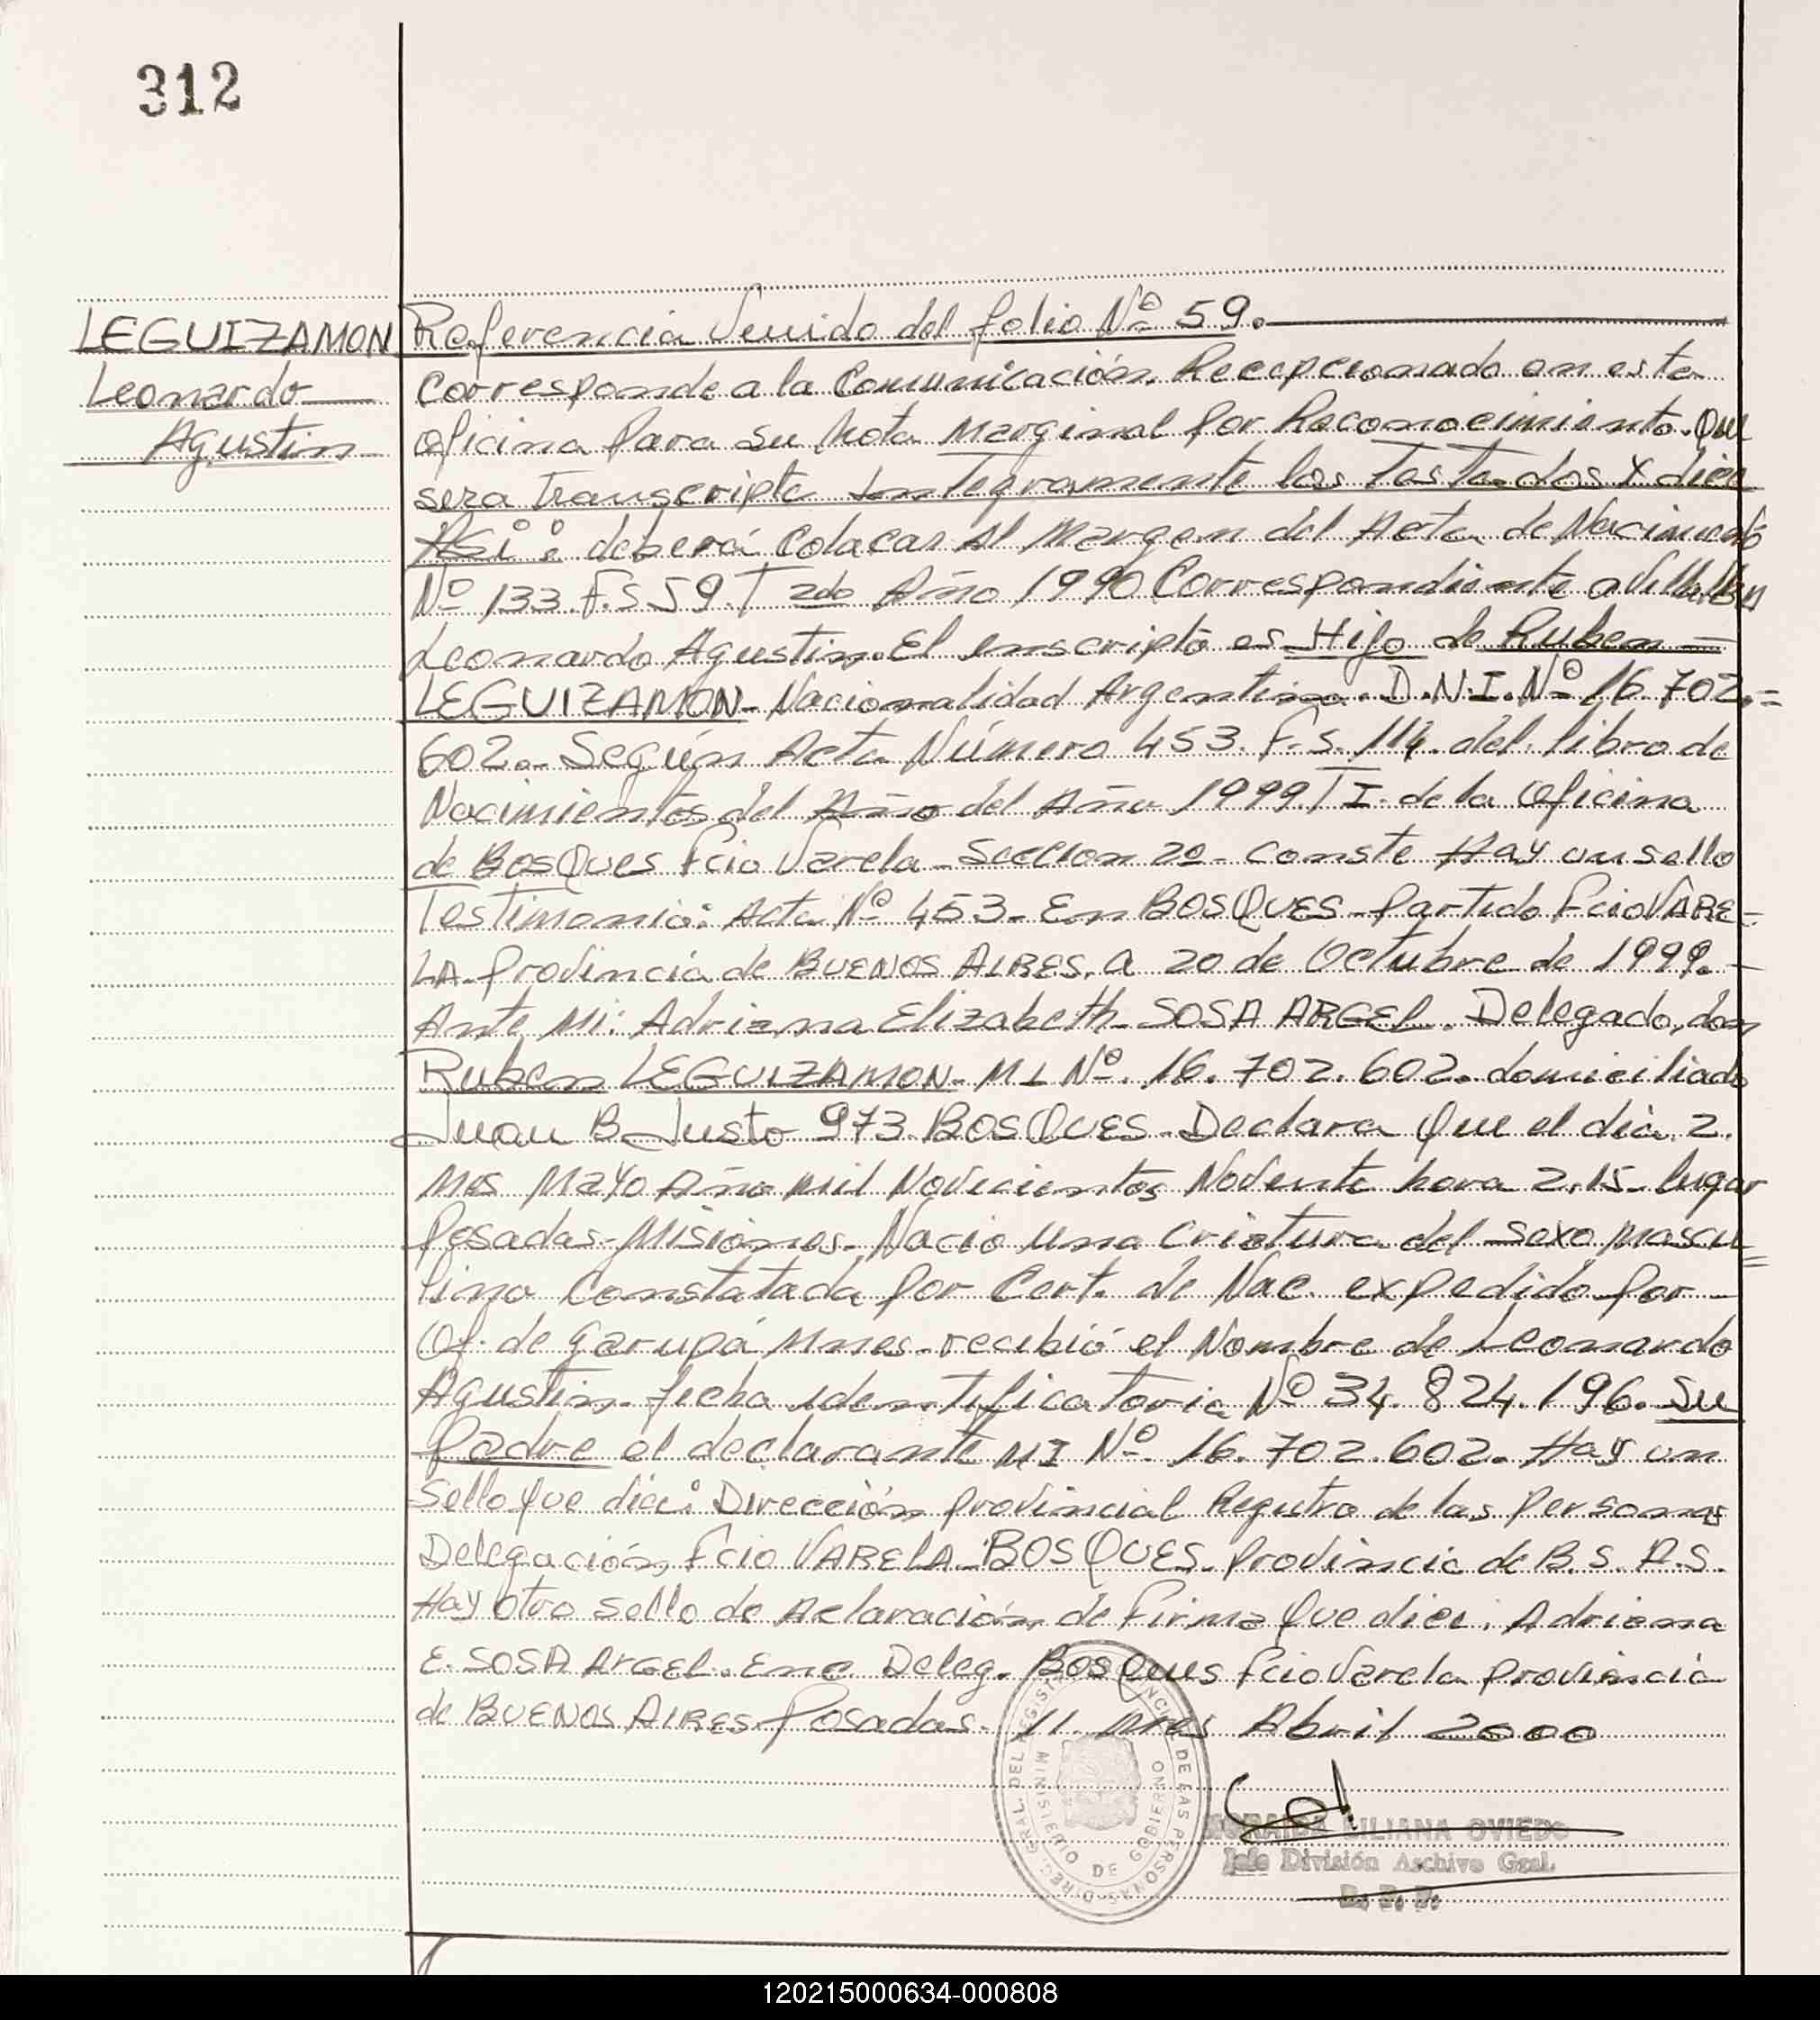 312
LEGUIZAMON
Leonardo
Agustin
Referencia Venido del folio Nº 59.
Corresponde a la Comunicación. Recepcionado en esta
oficina para su Nota Marginal por Reconocimiento. Que
sera transcripta Integramente los Testados X dice
Asi: deberá Colocar Al Margen del Acta de Nacimiento
Nº 133. F.S 59. T 2do Año 1990 Correspondiente a Villalba
Leonardo Agustin. El inscripto es Hijo de Ruben =
LEGUIZAMON- Nacionalidad Argentina. D.N.I. Nº 16 702.=
602.- Según Acta Número 453. F.S. 114. del libro de
Nacimientos del Año del Año 1999 T I. de la Oficina
de BosQues Fcio Varela - Seccion 2º - Conste Hay un sello
Testimonio: Acta Nº 453. En BOSQUES - Partido Fcio VARE=
LA. Provincia de BUENOS AIRES. a 20 de Octubre de 1999. -
Ante Mi: Adriana Elizabeth - SOSA ARGEL. Delegado, don
Ruben LEGUIZAMON - MI Nº. 16.702.602. domiciliado
Juan B. Justo 973 BOSQUES - Declara Que el dia 2.
Mes Mayo Año Mil Novecientos Noventa hora 2.15. lugar
Posadas - Misiones. Nacio Una Criatura del Sexo Mascu=
lino Constatada por Cert. de Nac. expedido por -
Of. de Garupá Mnes. recibió el Nombre de Leonardo
Agustin. ficha identificatoria Nº 34.824.196. Su
Padre el declarante MI Nº. 16.702.602. Hay un
Sello Que dice: Dirección Provincial Registro de las Personas
Delegación, Fcio VARELA - BOSQUES. Provincia de B.S. A.S.
Hay otro Sello de Aclaración de Firma Que dice: Adriana
E. SOSA ARGEL. Deleg. BosQues Fcio Varela Provincia
de BUENOS AIRES. Posadas. 11. Mes Abril 2000
MINISTERIO DE GOBIERNO
LILIANA OVIEDO
Jefe División Archivo Gral.
120215000634-000808